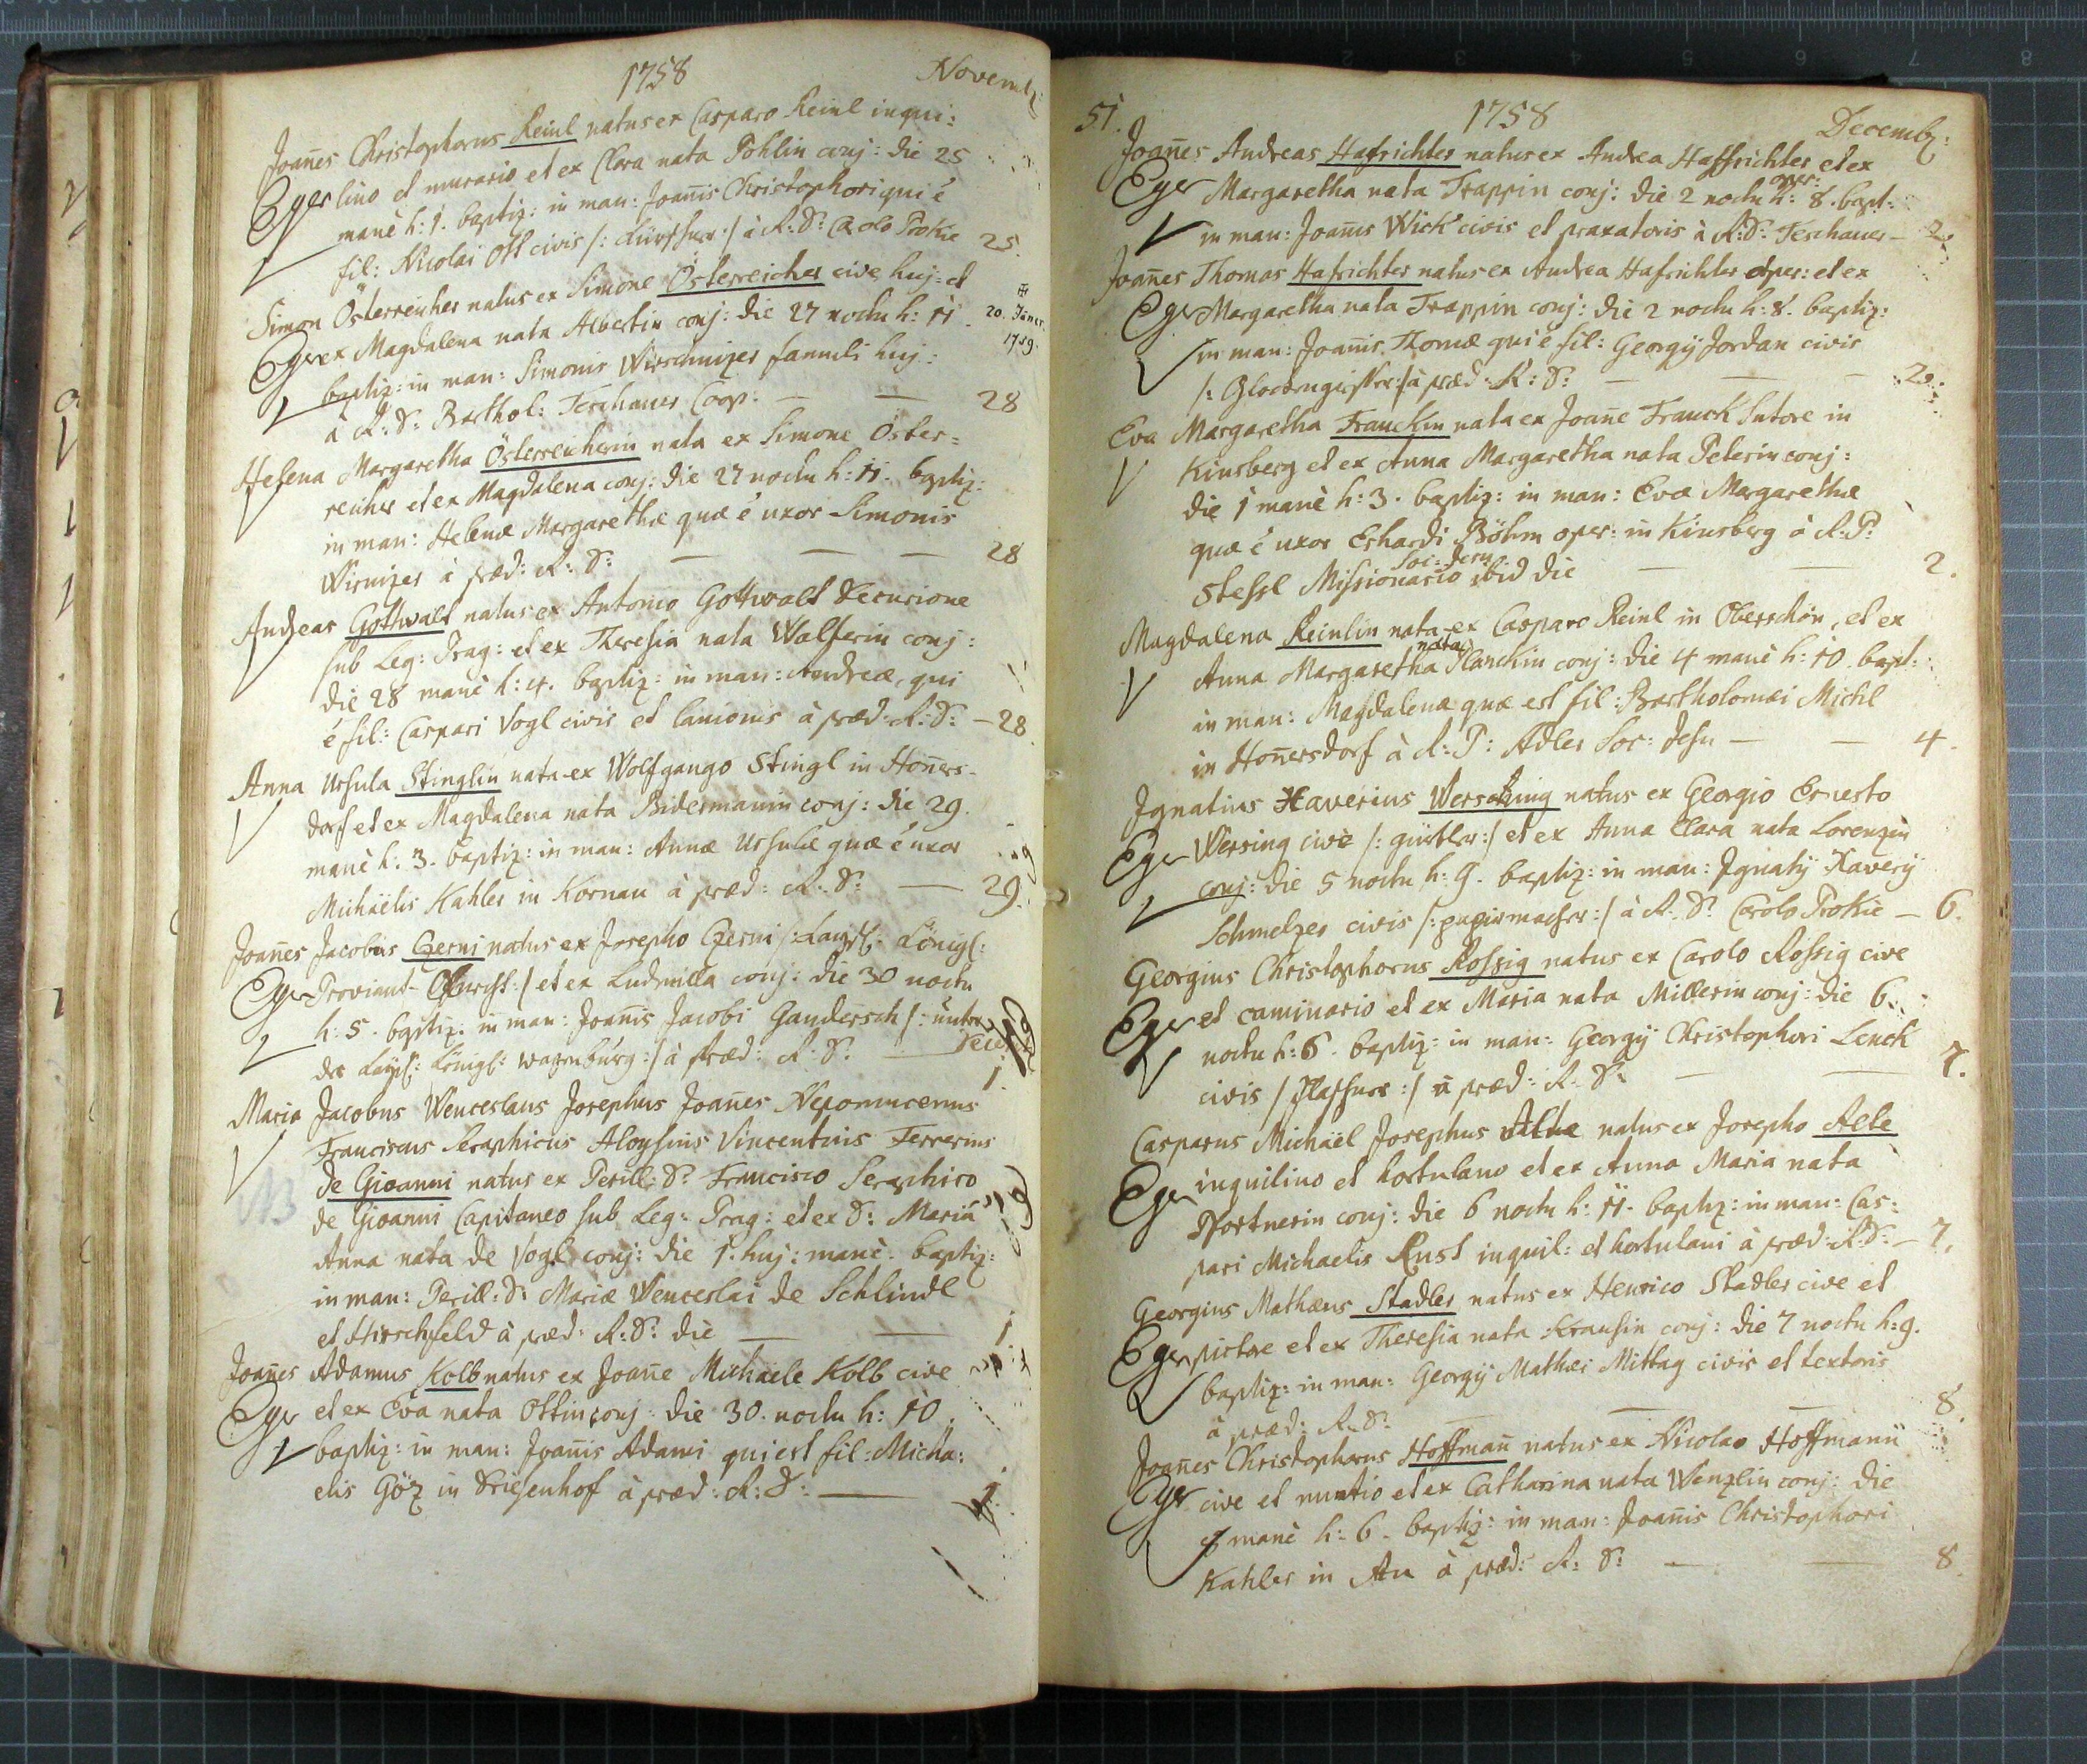 1758 Novemb:
Joan̄es Christophorus Reinl natus ex Casparo Reinl inqui:
Eger lino et murario et ex Clara nata Pohlin conj: die 25
manè h: 1. baptiz: in man: Joan̄is Christophori qui è
fil: Nicolai Ott civis /: Kürschner :/ à R: D: Carolo Prokie 25.
Simon Österreicher natus ex Simone Österreicher cive huj: et
Eger ex Magdalena nata Albertin conj: die 27 noctu h: 11. 20. Jäner
1759.
baptiz: in man: Simonis Wirschnizer famuli huj:
à R: D: Barthol: Teschauer Coop: — — 28
Helena Margaretha Österreicherin nata ex Simone Öster=
reicher et ex Magdalena conj: die 27 noctu h: 11. baptiz:
in man: Helenæ Margarethæ quæ è uxor Simonis
Wirnizer à præd: R: D: — — — 28
Andreas Gottwalt natus ex Antonio Gottwalt Decurione
sub Leg: Prag: et ex Theresia nata Walferin conj:
die 28 manè h: 4. baptiz: in man: Andreæ, qui
è fil: Caspari Vogl civis et lanionis à præd: R: D: — 28.
Anna Ursula Stinglin nata ex Wolfgango Stingl in Hon̄ers-
dorf et ex Magdalena nata Bidermanin conj: die 29.
manè h: 3. baptiz: in man: Annæ Ursulæ quæ è uxor
Michaëlis Kahler in Kornau à præd: R: D: — 29.
Joan̄es Jacobus Czerni natus ex Josepho Czerni /: Kaysl: Königl:
Eger Proviant- :/ et ex Ludmilla conj: die 30 noctu
h: 5. baptiz: in man: Joan̄is Jacobi Gandersch /: unter
der Kaysl: Königl: wagenburg :/ à præd: R: D: —
1.
Maria Jacobus Wenceslaus Josephus Joan̄es Nepomucenus
Franciscus Seraphicus Aloysius Vincentius Ferrerius
de Gioanni natus ex Perill: D: Francisco Seraphico
NB de Gioanni Capitaneo sub Leg: Prag: et ex D: Maria
Anna nata de Vogl conj: die 1. huj: manè. baptiz:
in man: Perill: D: Mariæ Wenceslai de Schlindl
et Hirschfeld à præd: R: D: die — — 1.
Joan̄es Adamus Kolb natus ex Joan̄e Michaële Kolb cive
Eger et ex Eva nata Ottin conj: die 30. noctu h: 10.
baptiz: in man: Joan̄is Adami qui est fil: Micha:
elis Göz in Driesenhof à præd: R: D: — 1.
51. 1758 Decemb:
Joan̄es Andreas Hafrichter natus ex Andrea Haffrichter et ex
oper:
Eger Margaretha nata Trappin conj: die 2 noctu h: 8. bapt:
in man: Joan̄is Wick civis et praxatoris à R: D: Teschauer — 2.
Joan̄es Thomas Hafrichter natus ex Andrea Hafrichter oper: et ex
Eger Margaretha nata Trappin conj: die 2 noctu h: 8. baptiz:
in man: Joan̄is Thomæ qui è fil: Georgÿ Jordan civis
/: Glockengießer :/ à præd: R: D: — — — 2.
Eva Margaretha Franckin nata ex Joan̄e Franck Sutore in
Kinsberg et ex Anna Margaretha nata Peterin conj:
die 1 manè h: 3. baptiz: in man: Evæ Margarethæ
quæ è uxor Erhardi Böhm oper: in Kinsberg à R: P:
Soc: Jesu
Stessl Missionario ibid die — — 2.
Magdalena Reinlin nata ex Casparo Reinl in Oberschön, et ex
nata
Anna Margaretha Planckin conj: die 4 manè h: 10. bapt:
in man: Magdalenæ quæ est fil: Bartholomæi Michl
in Hon̄ersdorf à R: P: Adler Soc: Jesu — — 4.
Ignatius Xaverius Wersching natus ex Georgio Ernesto
Eger Wersing cive /: gürtler :/ et ex Anna Clara nata Lorenzin
conj: die 5 noctu h: 9. baptiz: in man: Ignatÿ Xaverÿ
Schmelzer civis /: papiermacher :/ à R: D: Carolo Prokie — 6.
Georgius Christophorus Rossig natus ex Carolo Rossig cive
Eger et caminario et ex Maria nata Millerin conj: die 6.
noctu h: 6. baptiz: in man: Georgÿ Christophori Lenck
civis / :/ à præd: R: D: — — 7.
Casparus Michaël Josephus natus ex Josepho Aële
Eger inquilino et hortulano et ex Anna Maria nata
Pfortnerin conj: die 6 noctu h: 11. baptiz: in man: Cas:
pari Michaelis Rust inquil: et hortulani à præd: R: D: — 7.
Georgius Mathæus Stadler natus ex Henrico Stadler cive et
Eger pictore et ex Theresia nata Krausin conj: die 7 noctu h: 9.
baptiz: in man: Georgÿ Mathæi Mittag civis et textoris
à præd: R: D: — — — 8.
Joan̄es Christophorus Hoffman̄ natus ex Nicolao Hoffmann
Eger cive et nuntio et ex Catharina nata Wenzlin conj: die
8 manè h: 6. baptiz: in man: Joan̄is Christophori
Kahler in Au à præd: R: D: — — 8.